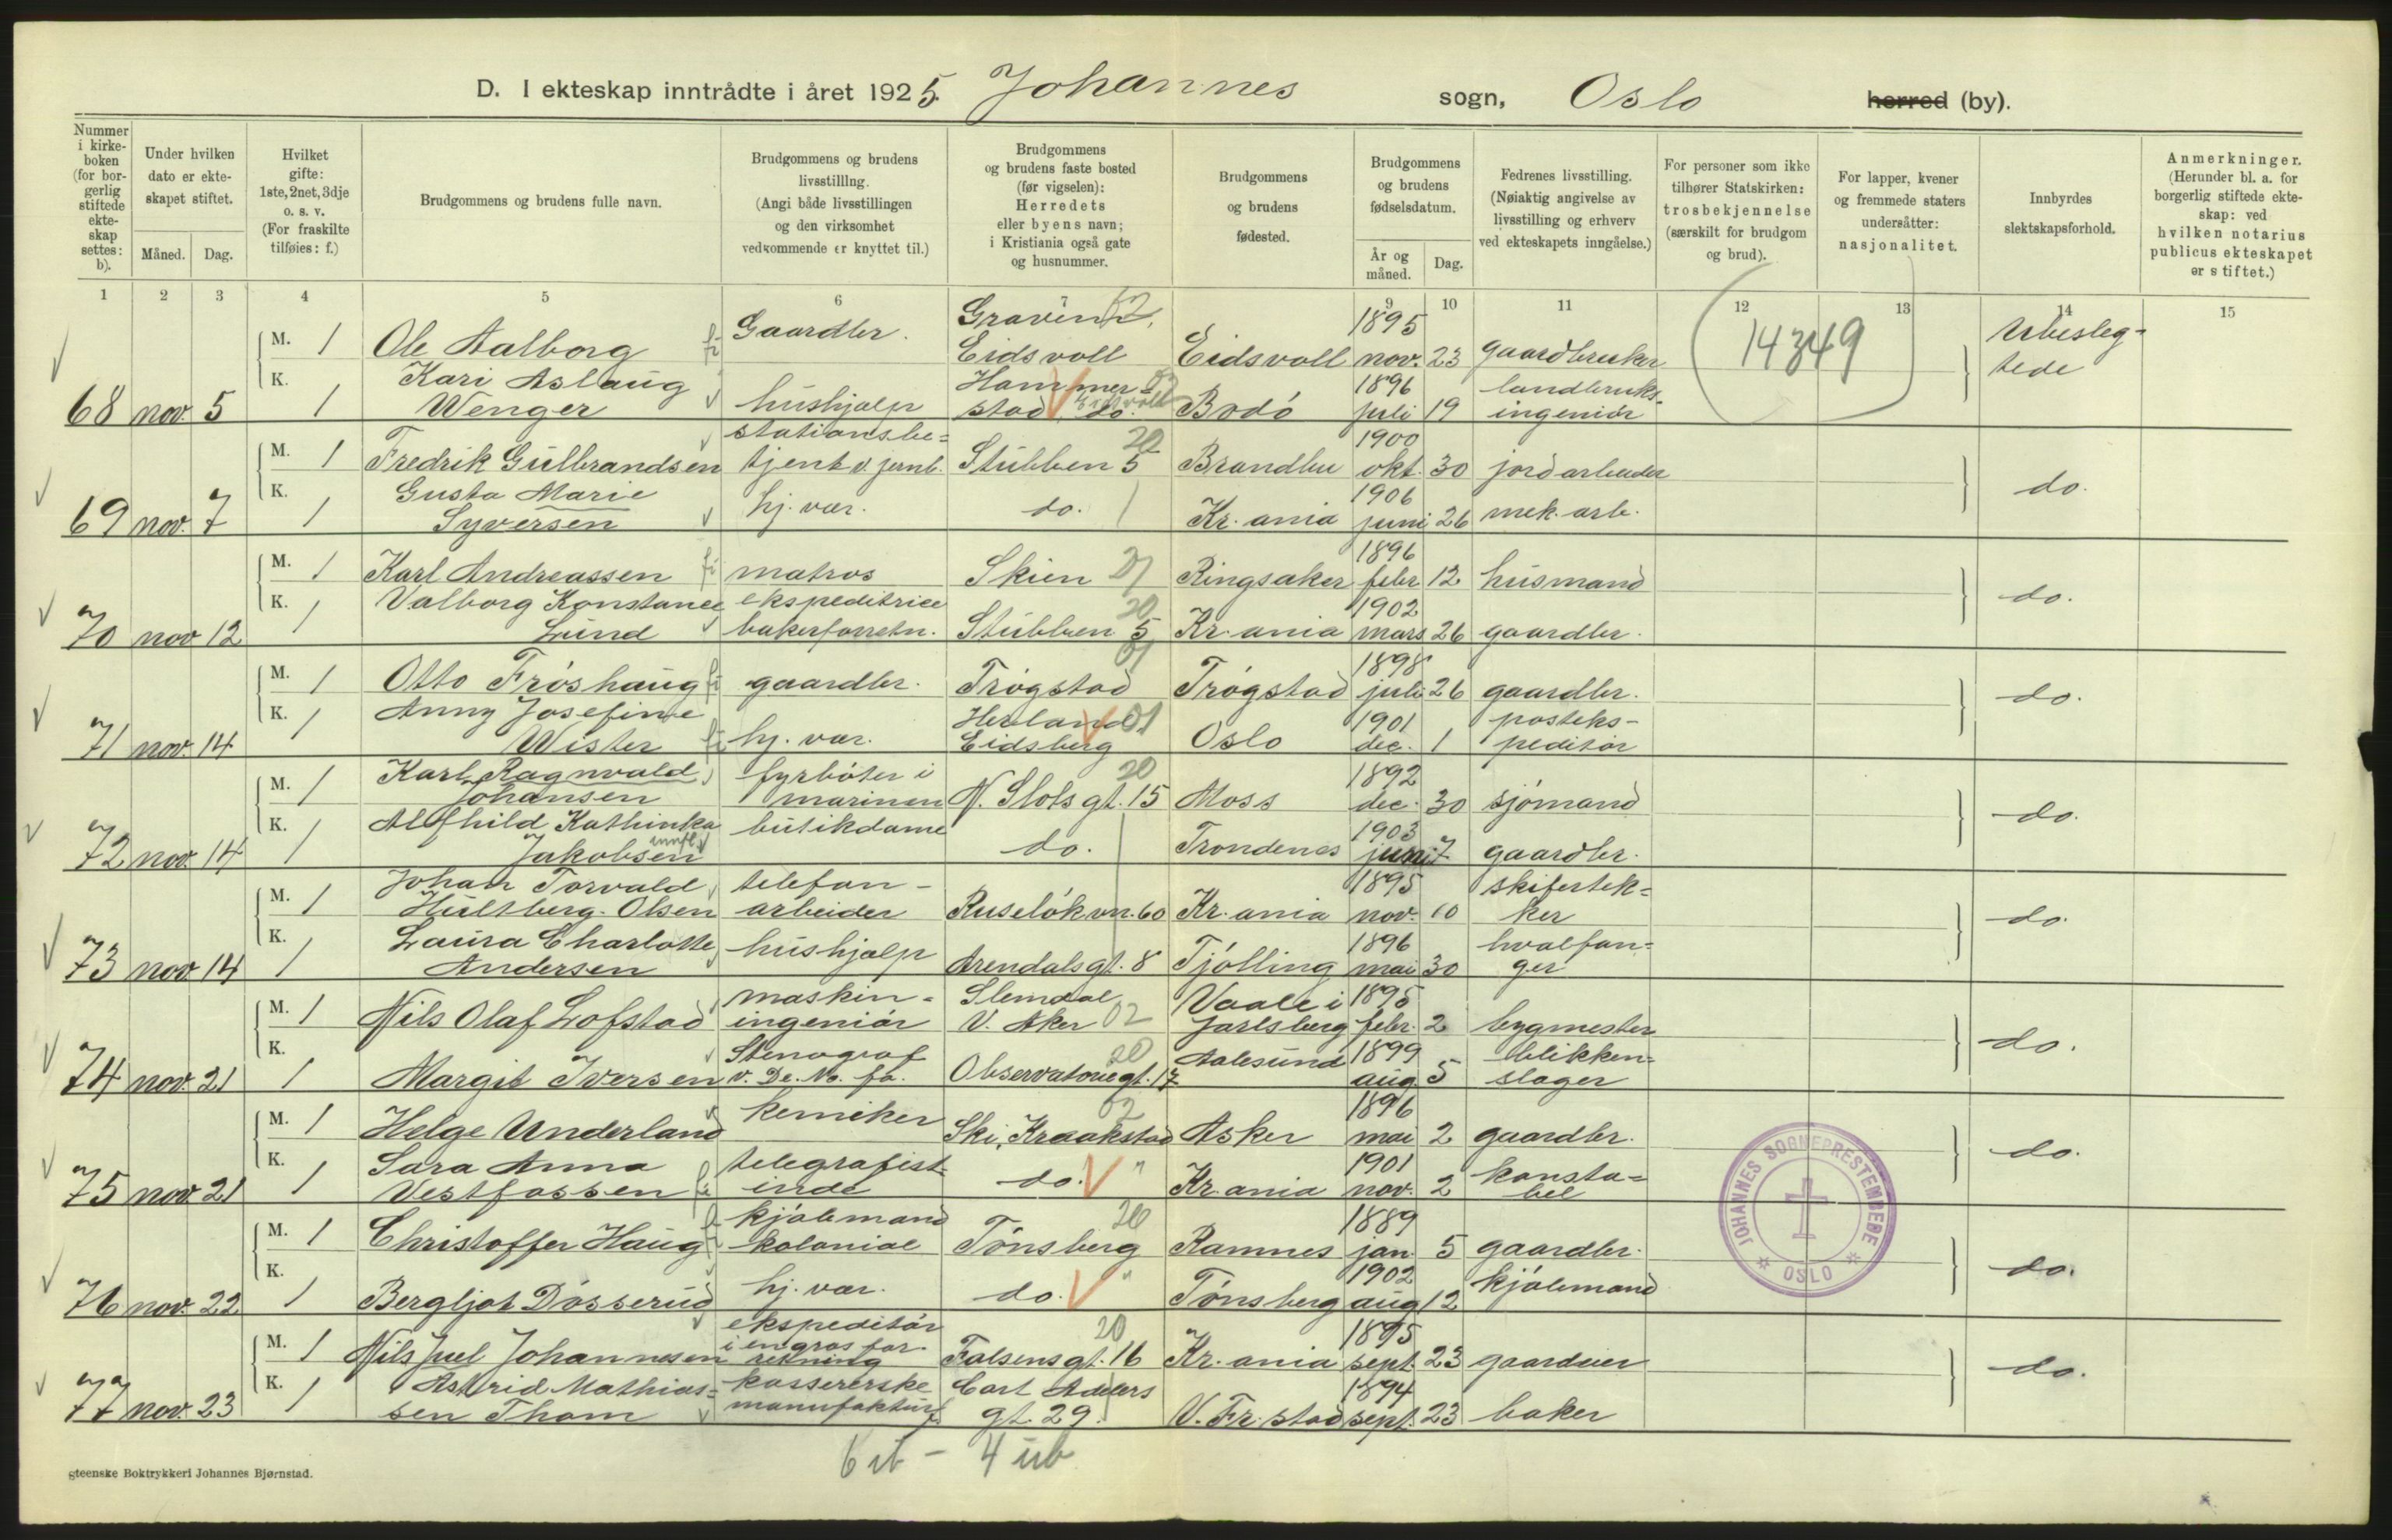 D. I ekteskap inntrådte i året 1925. Johannes sogn, Oslo herred (by).
Nummer i kirke-boken (for bor-gerlig stiftede ekte-skap settes: b).
Under hvilken dato er ekte-skapet stiftet.
Måned. Dag.
Hvilket gifte: 1ste, 2net, 3dje o. s. v. (For fraskilte tilføies: f.)
Brudgommens og brudens fulle navn.
Brudgommens og brudens livsstilling. (Angi både livsstillingen og den virksomhet vedkommende er knyttet til.)
Brudgommens og brudens faste bosted (før vigselen): Herredets eller byens navn; i Kristiania også gate og husnummer.
Brudgommens og brudens fødested.
Brudgommens og brudens fødselsdatum.
År og måned. Dag.
Fedrenes livsstilling. (Nøiaktig angivelse av livsstilling og erhverv ved ekteskapets inngåelse.)
For personer som ikke tilhører Statskirken: trosbekjennelse (særskilt for brudgom og brud).
For lapper, kvener og fremmede staters undersåtter: nasjonalitet.
Innbyrdes slektskapsforhold.
Anmerkninger. (Herunder bl. a. for borgerlig stiftede ekte-skap: ved hvilken notarius publicus ekteskapet er stiftet.)
1 2 3 4 5 6 7 8 9 10 11 12 13 14 15
M. 1 Ole Aalborg Gaardbr. Eidsvoll Eidsvoll 1895 nov. 23 gaardbruker 14349 Ubesleg-tede
68 nov. 5 K. 1 Kari Aslaug Wenger hushjælp Hammer-stad do. Bodö 1896 juli 19 landbruks-ingeniör
M. 1 Fredrik Gulbrandsen stationsbe-tjent v. jernb. Stubben 5 20 Brandbu 1900 okt. 30 jordarbeider do.
69 nov. 7 K. 1 Gusta Marie Syversen hj. vær. do. Kr.ania 1906 juni 26 mek. arb.
M. 1 Karl Andreassen matros Skien 21 Ringsaker 1896 febr 12 husmand do.
70 nov 12 K. 1 Valborg Konstance Lund ekspeditrice bakerforretn. Stubben 5 20 Kr.ania 1902 mars 26 gaardbr.
M. 1 Otto Fröshaug gaardbr. Trögstad 01 Trögstad 1898 juli 26 gaardbr. do.
71 nov. 14 K. 1 Anny Josefine Wister hj. vær. Herland Eidsberg 01 Oslo 1901 dec. 1 posteks-peditör
M. 1 Karl Ragnvald Johansen fyrböter i marinen N. Slotsgt. 15 20 Moss 1892 dec. 30 sjömand do.
72 nov. 14 K. 1 Alfhild Kathinka Jakobsen butikdame do. Trondenes 1903 juni 7 gaardbr.
M. 1 Johan Torvald Hultberg-Olsen telefon-arbeider Ruselökvn. 60 Kr.ania 1895 nov. 10 skifertek-ker do.
73 nov 14 K. 1 Laura Charlotte Andersen hushjælp Arendalsgt. 8 Tjölling 1896 mai 30 hvalfan-ger
M. 1 Nils Olaf Lofstad maskin-ingeniör Slemdal V. Aker 02 Vaale i Jarlsberg 1895 febr. 2 bygmester do.
74 nov. 21 K. 1 Margit Iversen Stenograf v. De. No. fa. Observatoriegt. 17 20 Aalesund 1899 aug. 5 blikken-slager
M. 1 Helge Underland kemiker Ski, Kraakstad 02 Asker 1896 mai 2 gaardbr. do.
75 nov. 21 K. 1 Sara Anna Vestfossen telegrafist-inde do. " Kr.ania 1901 nov. 2 konsta-bel
M. 1 Christoffer Haug kjöbmand kolonial Tönsberg 20 Ramnes 1889 jan. 5 gaardbr. do.
76 nov. 22 K. 1 Bergljot Dösserud hj. vær. do. " Tönsberg 1902 aug 12 kjöbmand
M. 1 Nils Juel Johannesen ekspeditör i engros for-retning Falsensgt. 16 20 Kr.ania 1895 sept. 23 gaardeier do.
77 nov. 23 K. 1 Astrid Mathias-sen Thom kassererske manufaktur Cort Adelers gt. 29. V. Fr.stad 1894 sept. 23 baker
JOHANNES SOGNEPRESTEMBEDE * OSLO *
6 ib - 4 ub
Steenske Boktrykkeri Johannes Bjørnstad.